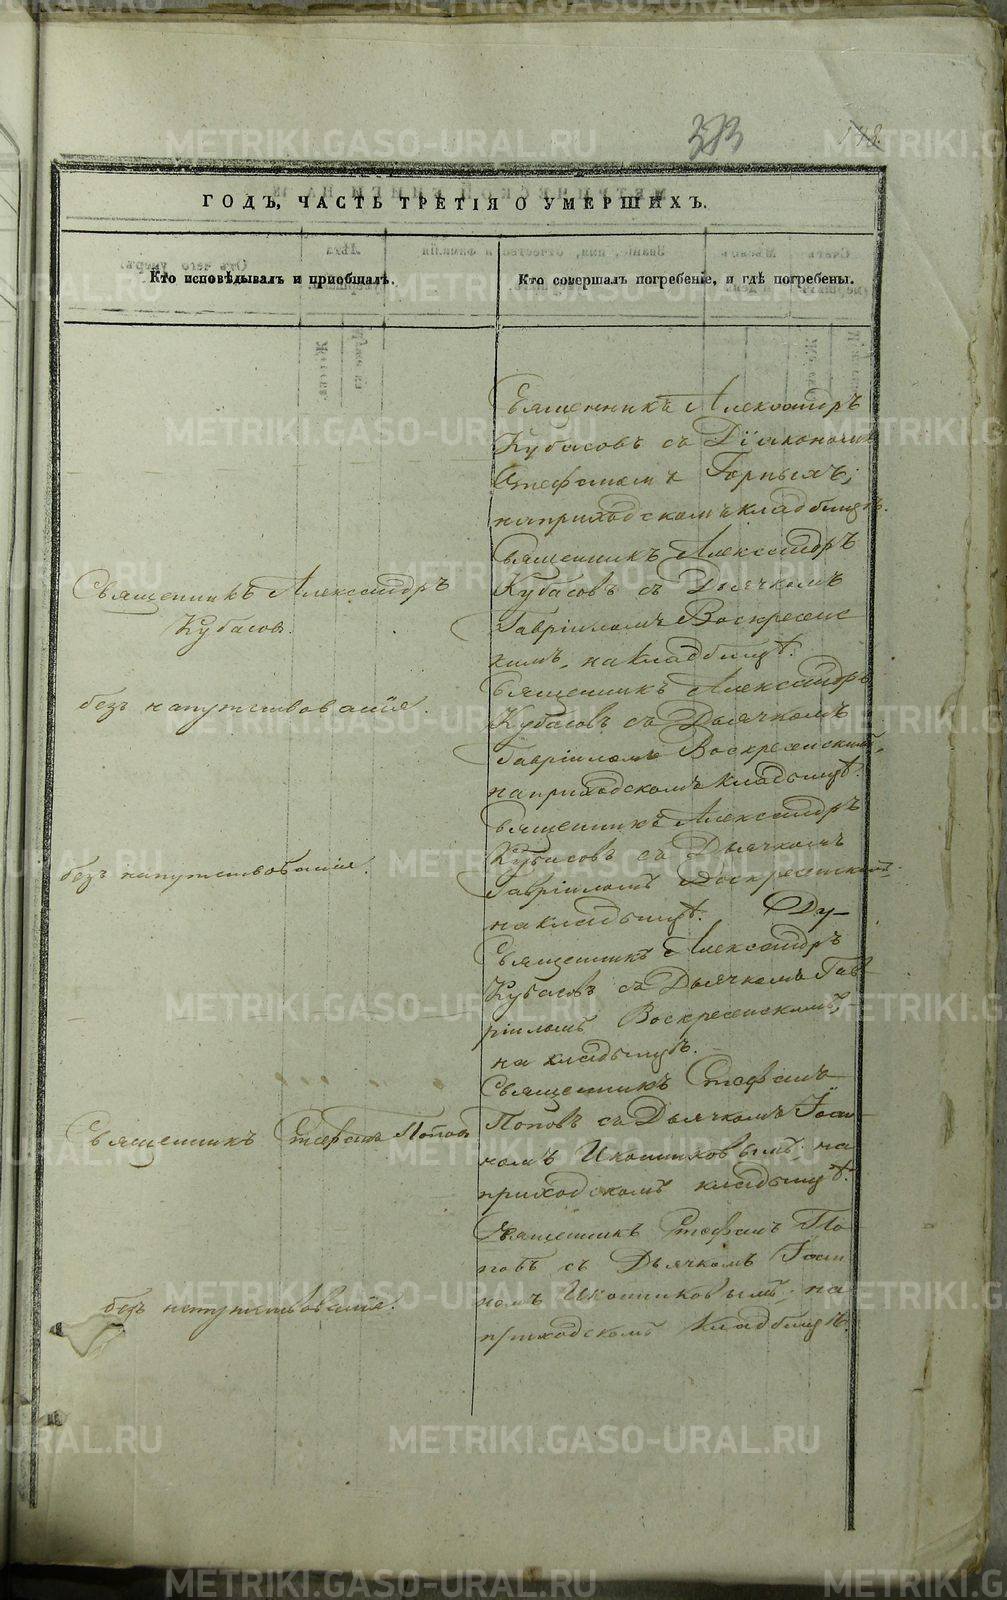 383
148.
ГОДЪ, ЧАСТЬ ТРЕТІЯ О УМЕРШИХЪ.
Кто исповѣдывалъ и пріобщалъ.
Кто совершалъ погребеніе, и гдѣ погребены.
Священникъ Александръ
Кубасовъ съ Діакономъ
Стефаномъ Горныхъ;
на приходскомъ кладбищѣ.
Священникъ Александръ
Кубасовъ.
Священникъ Александръ
Кубасовъ съ Дьячкомъ
Гавріиломъ Воскресенс
кимъ, на кладбищѣ.
безъ напутствованія.
Священникъ Александръ
Кубасовъ съ Дьячкомъ
Гавріиломъ Воскресенскимъ,
на приходскомъ кладбищѣ.
безъ напутствованія.
Священникъ Александръ
Кубасовъ съ Дьячкомъ
Гавріиломъ Воскресенскимъ
на кладбищѣ. Ду-
Священникъ Александръ
Кубасовъ съ Дьячкомъ Гав
ріиломъ Воскресенскимъ,
на кладбищѣ.
Священникъ Стефанъ Попов
Священникъ Стефанъ
Поповъ съ Дьячкомъ Іоан
номъ Иконниковымъ на
приходскомъ кладбищѣ.
безъ напутствованія.
Священникъ Стефанъ По
повъ съ Дьячкомъ Іоан
номъ Иконниковымъ; на
приходскомъ кладбищѣ.
METRIKI.GASO-URAL.RU